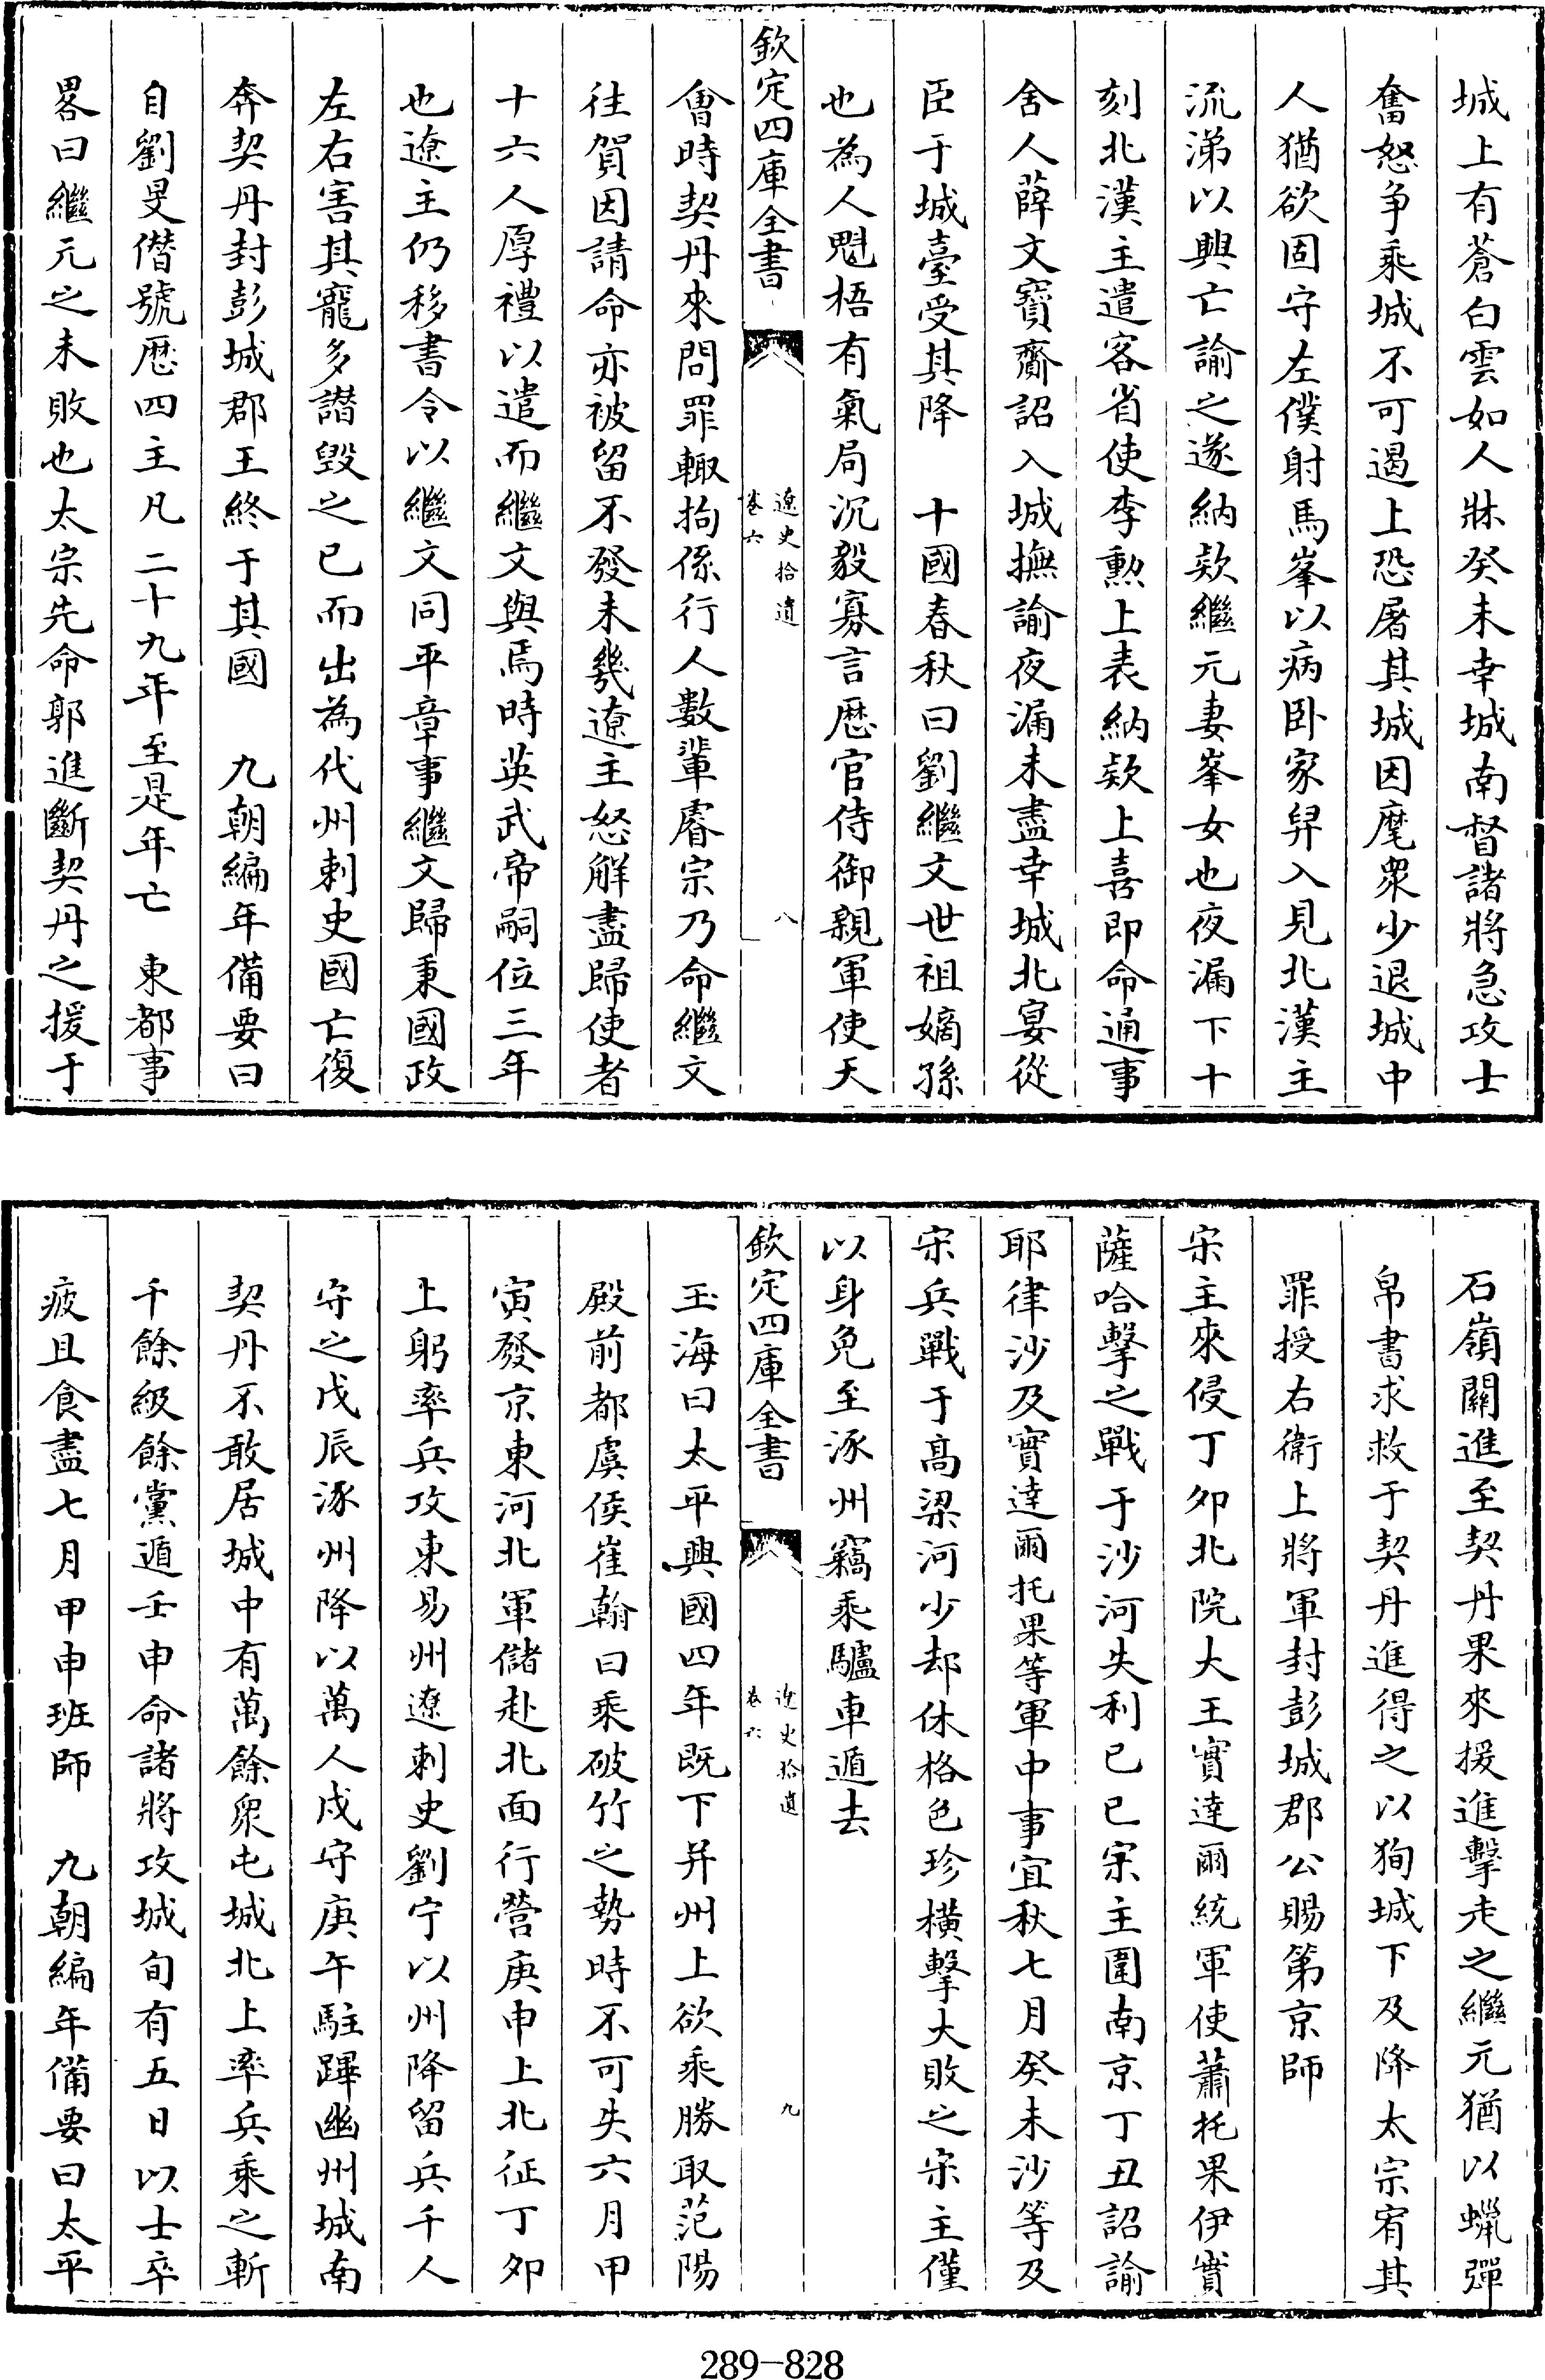 城上有蒼白雲如人牀癸未幸城南督諸將急攻士
奮怒争乘城不可遏上恐屠其城因麾衆少退城中
人猶欲固守左僕射馬峯以病卧家舁入見北漢主
流涕以興亡諭之遂納欵繼元妻峯女也夜漏下十
刻北漢主遣客省使李勲上表納欵上喜即命通事
舍人薛文寶齎詔入城撫諭夜漏未盡幸城北宴從
臣于城臺受其降　十國春秋曰劉繼文世祖嫡孫
也為人魁梧有氣局沉毅寡言歴官侍御親軍使天
欽定四庫全書
遼史拾遺
卷六
八
會時契丹來問罪輙拘係行人數輩睿宗乃命繼文
往賀因請命亦被留不發未幾遼主怒解盡歸使者
十六人厚禮以遣而繼文與焉時英武帝嗣位三年
也遼主仍移書令以繼文同平章事繼文歸秉國政
左右害其寵多譖毀之已而出為代州刺史國亡復
奔契丹封彭城郡王終于其國　九朝編年備要曰
自劉旻僭號歴四主凡二十九年至是年亡　東都事
畧曰繼元之未敗也太宗先命郭進斷契丹之援于
石嶺關進至契丹果來援進擊走之繼元猶以蠟彈
帛書求救于契丹進得之以狥城下及降太宗宥其
罪授右衛上將軍封彭城郡公賜第京師
宋主來侵丁夘北院大王實達爾統軍使蕭托果伊實
薩哈擊之戰于沙河失利己巳宋主圍南京丁丑詔諭
耶律沙及實達爾托果等軍中事宜秋七月癸未沙等及
宋兵戰于高梁河少却休格色珍橫擊大敗之宋主僅
以身免至涿州竊乘驢車遁去
欽定四庫全書
遼史拾遺
卷六
九
玉海曰太平興國四年既下并州上欲乘勝取范陽
殿前都虞侯崔翰曰乘破竹之勢時不可失六月甲
寅發京東河北軍儲赴北面行營庚申上北征丁夘
上躬率兵攻東易州遼刺史劉宁以州降留兵千人
守之戊辰涿州降以萬人戍守庚午駐蹕幽州城南
契丹不敢居城中有萬餘衆屯城北上率兵乘之斬
千餘級餘黨遁壬申命諸將攻城旬有五日以士卒
疲且食盡七月甲申班師　九朝編年備要曰太平
289-828